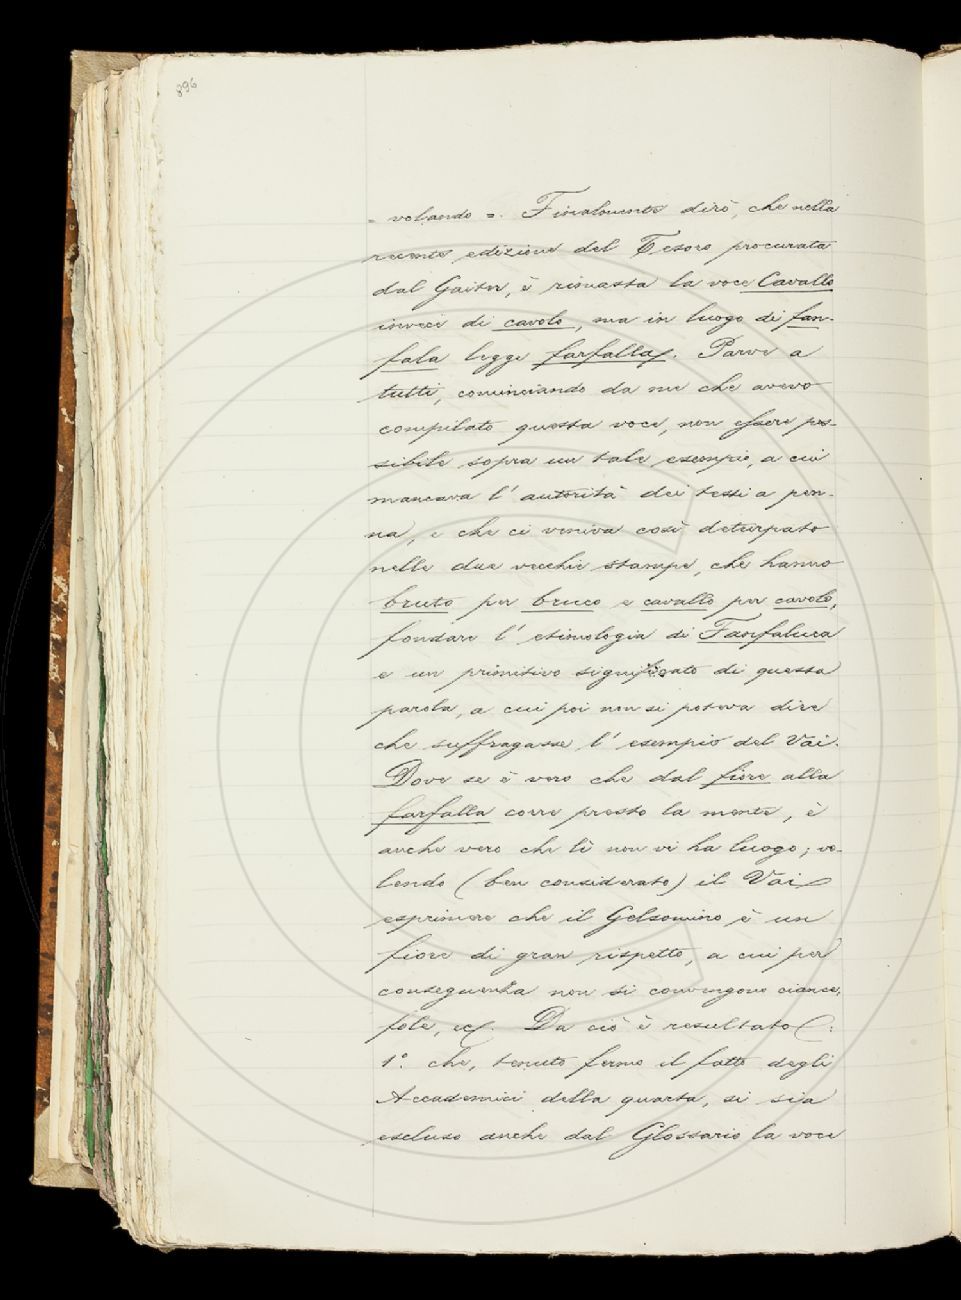 896
= volando =. Finalmente dirò, che nella
recente edizione del Tesoro procurata
dal Gaiter, è rimasta la voce Cavallo
invece di cavolo, ma in luogo di fan-
fala legge farfalla. Parve a
tutti, cominciando da me che avevo
compilato questa voce, non essere pos-
sibile sopra un tale esempio, a cui
mancava l' autorità dei testi a pen-
na, e che ci veniva così deturpato
nelle due vecchie stampe, che hanno
bruto per bruco e cavallo per cavolo,
fondare l' etimologia di Fanfaluca
e un primitivo significato di questa
parola, a cui poi non si poteva dire
che suffragasse l' esempio del Vai.
Dove se è vero che dal fiore alla
farfalla corre presto la mente, è
anche vero che lì non vi ha luogo; vo-
lendo (ben considerato) il Vai
esprimere che il Gelsomino è un
fiore di gran rispetto, a cui per
conseguenza non si convengono ciance,
fole, ec. Da ciò è resultato:
1°. che, tenuto fermo il fatto degli
Accademici della quarta, si sia
escluso anche dal Glossario la voce